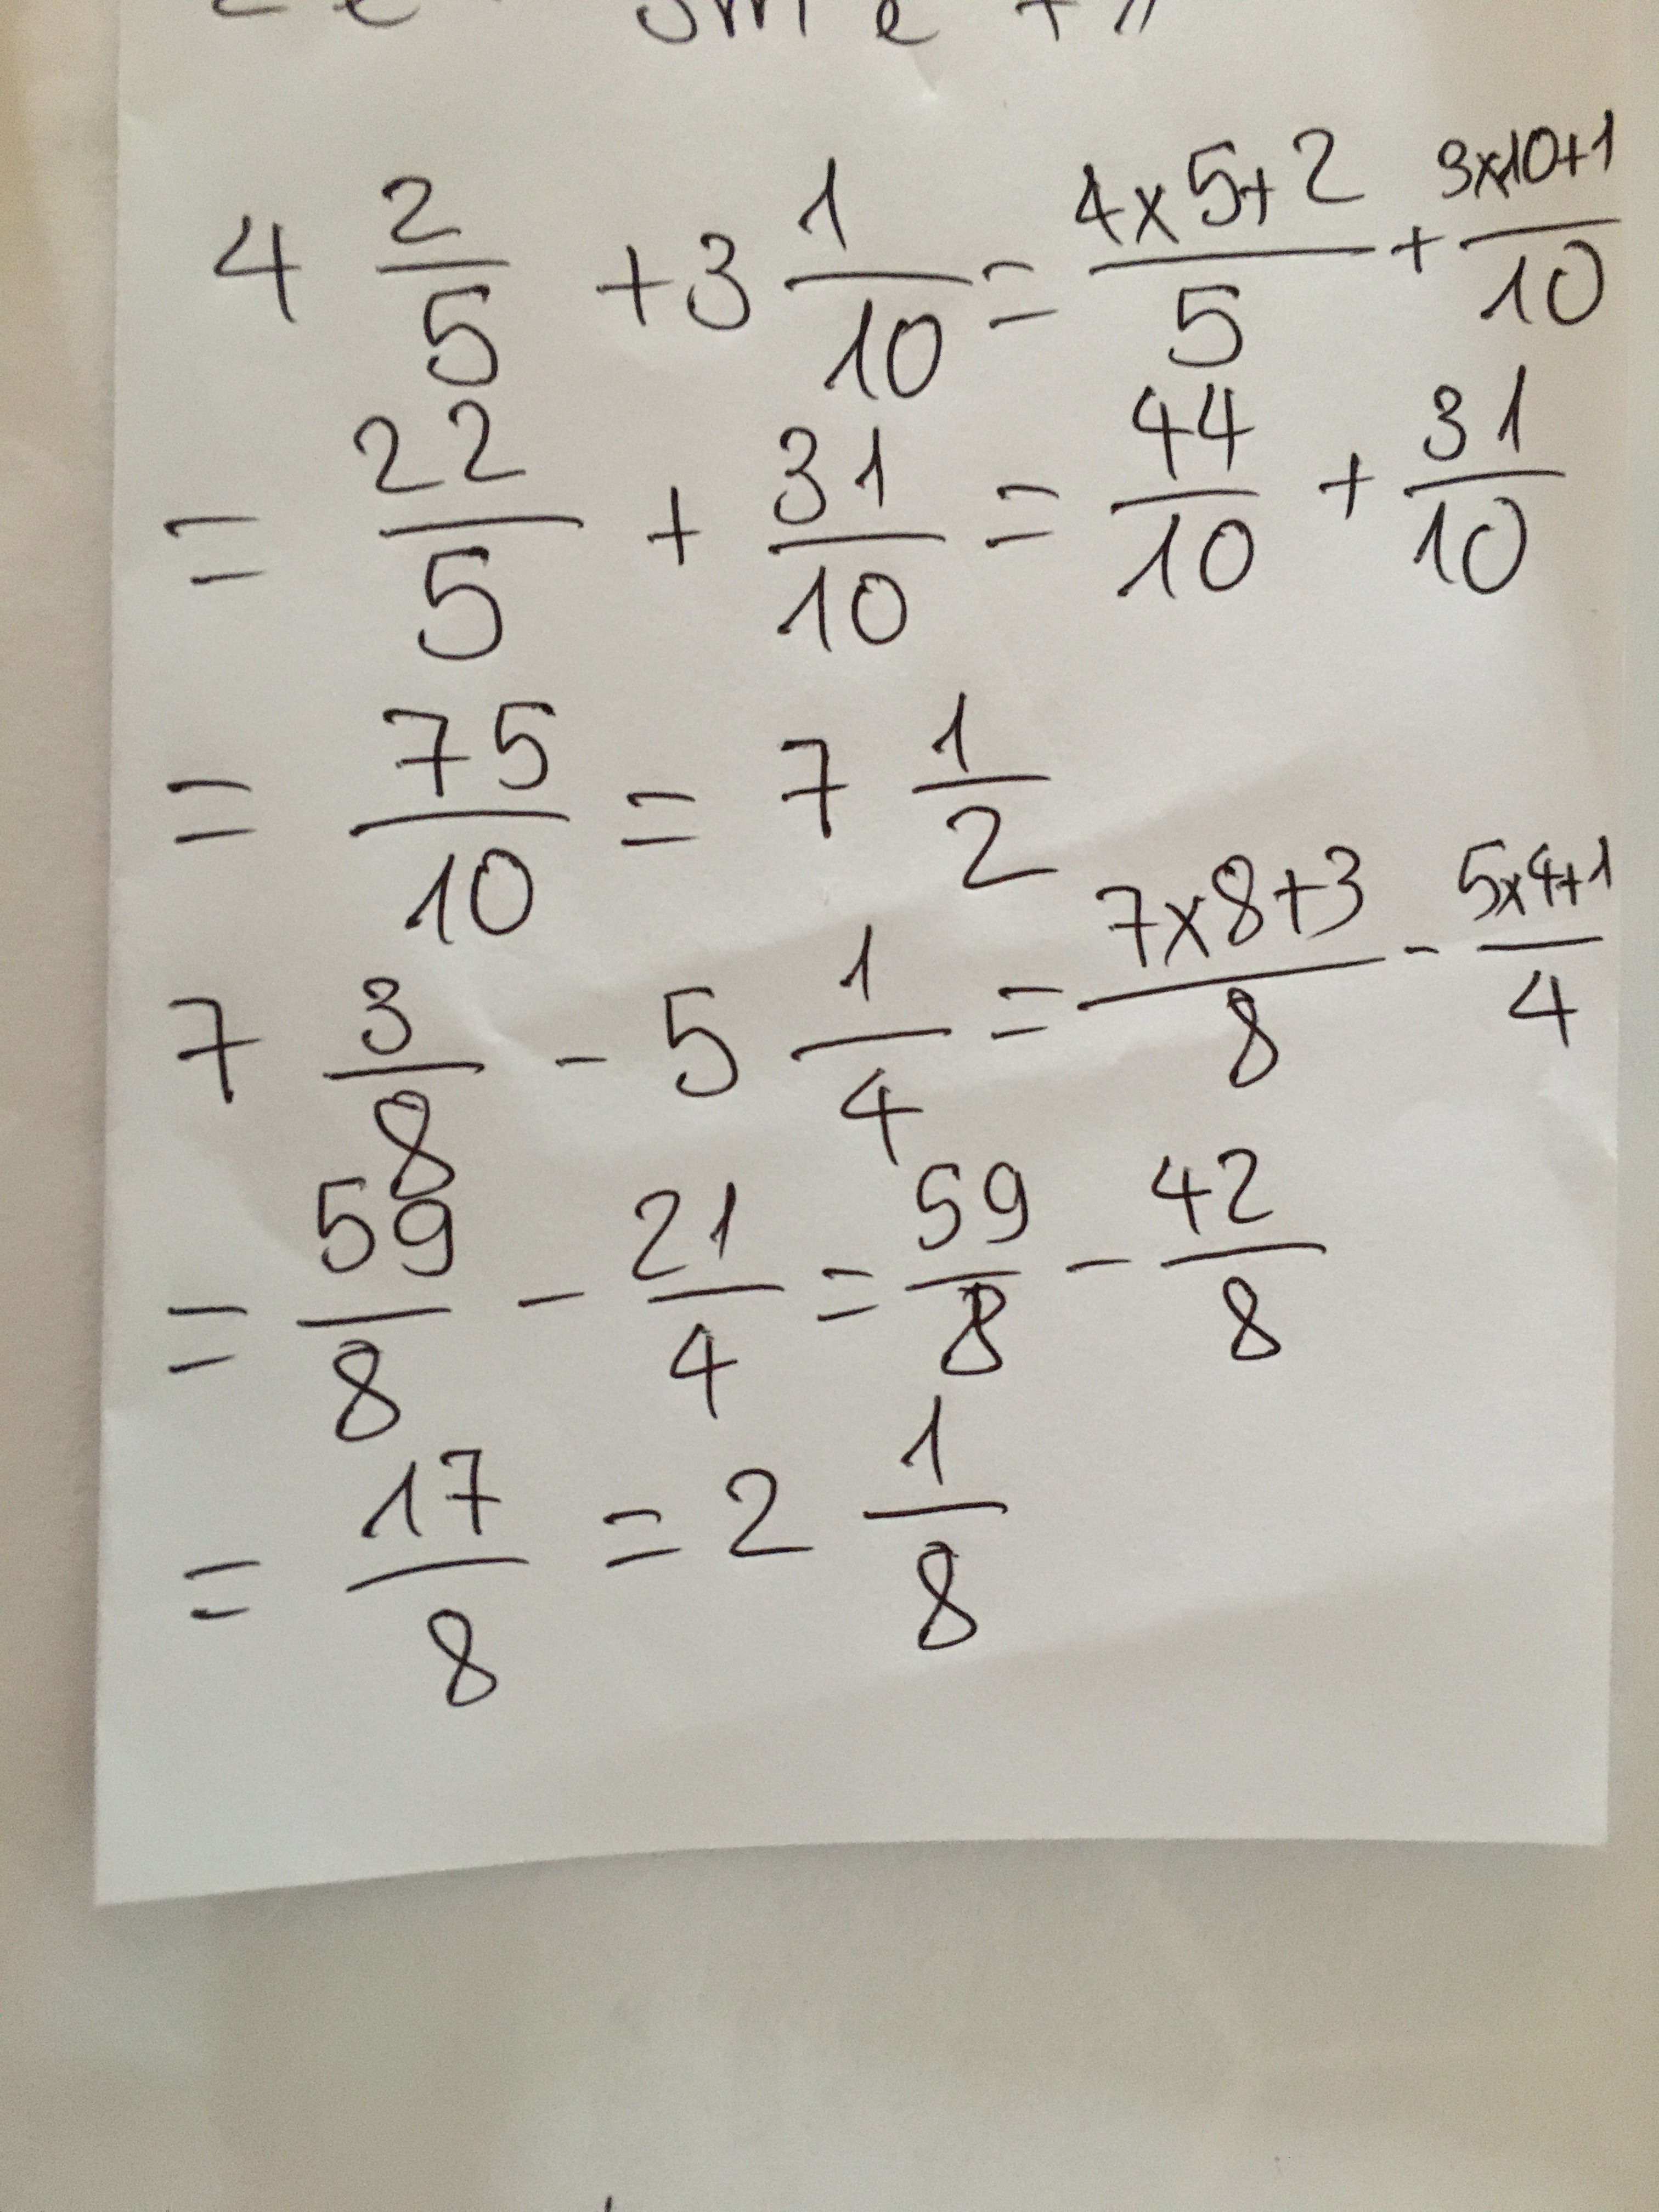 4 2/5 + 3 1/10 = (4x5+2)/5 + (3x10+1)/10
= 22/5 + 31/10 = 44/10 + 31/10
= 75/10 = 7 1/2
7 3/8 - 5 1/4 = (7x8+3)/8 - (5x4+1)/4
= 59/8 - 21/4 = 59/8 - 42/8
= 17/8 = 2 1/8